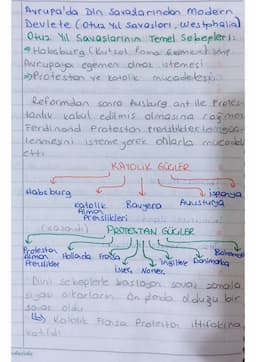 Avrupa'da Din Savaşlarından Modern
Devlete (Otuz Yıl Savaşları, Westphalia)
Otuz Yıl Savaşlarının Temel Sebepleri:
Habsburg (Kutsal Roma
Avrupaya egemen olmak istemesi
Protestan ve katolik mücadelesi
Reformdan sonra Ausburg ant. ile Protes-
tanlık kabul edilmiş olmasına rağmen
Ferdinand Protestan
lenmesini istemeyerek onlarla mücadele
etti.
KATOLİK GÜÇLER
Habsburg
Katolik Alman Prenslikleri
Bavyera
Avusturya
İspanya
(kazandı) PROTESTAN GÜÇLER
Protestan Alman Prenslikler
Hollanda
Fransa
İsveç, Norveç
İngiltere
Danimarka
Bohemya
Dini sebeplerle başlayan savaş zamanla
siyasi çıkarların ön planda olduğu bir
savaş oldu.
Katolik Fransa Protestan ittifakına
katıldı